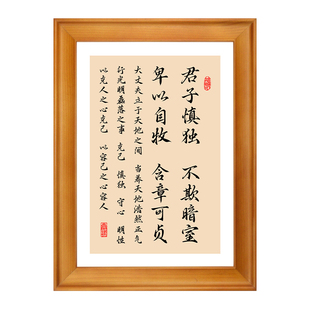 君子慎独 不欺暗室
卑以自牧 含章可贞
大丈夫立于天地之间 当养天地浩然正气
行光明磊落之事 克己 慎独 守心 明性
以克人之心克己 以容己之心容人